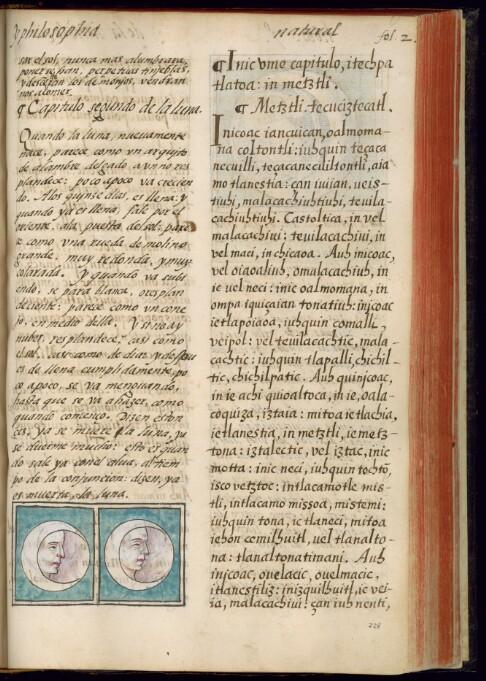 y philosophia
natural
fol. 2.
nos acomer.
¶ Capitulo segundo de la luna.
Quando la luna, nueuamente
nace, parece como vn arquito
de alambre delgado, aun no res
plandece: poco apoco va crecien
do. A los quinze dias, es llena: y
quando ya es llena, sale por el
oriente, ala puesta del sol: pare
ce como vna rueda de molino
grande, muy redonda, y muy
colorada. Y quando va subi
endo, se para blanca, o resplan
deciente: parece como vn cone
jo, en medio della. Y si no ay
nubes, resplandece, casi como
el sol, casi como de dia: y despu
es de llena cumplidamente, po
co apoco, se va menguando,
hasta que se va a hazer, como
quando començo. Dizen eston
ces, ya se muere la luna, ya
se duerme mucho: esto es quan
do sale ya con el alua, al tiem
po de la conjuncion: dizen, ya
es muerta la luna.
¶ Inic vme capitulo, itechpa
tlatoa: in metztli.
¶ Metztli. tecuciztecatl.
Inicoac iancuican, oalmoma-
na coltontli: iuhquin teçaca
necuilli, teçacanecuiltontli, aia
mo tlanestia: çan iuian, ueis-
tiuh, malacachiuhtiuh, teuila-
cachiuhtiuh. Castoltica, in vel
malacachiui: teuilacachiui, in
vel maci, in chicaoa. Auh inicoac,
vel oiaoaliuh, omalacachiuh, in
ie vel neci: inic oalmomana, in
ompa iquiçaian tonatiuh: injcoac
ietlapoiaoa, iuhquin comalli,
veipol: vel teuilacachtic, mala-
cachtic: iuhquin tlapalli, chichil-
tic, chichilpatic. Auh quinjcoac,
in ie achi quioaltoca, in ie, oala-
coquiza, iztaia: mitoa ietlachia,
ietlanestia, in metztli, ie metz-
tona: iztalectic, vel iztac, inic
motta: inic neci, iuhquin tochto,
isco vetztoc: intlacamotle mis-
tli, intlacamo missoa, mistemi:
iuhquin tona, ic tlaneci, mitoa
iehon cemilhuitl, uel tlanalto-
na: tlanaltonatimani. Auh
injcoac, ouelacic, ouelmacic,
itlanestiliz: inizquilhuitl, ie vei-
ia, malacachiui: çan iuh nenti,
228